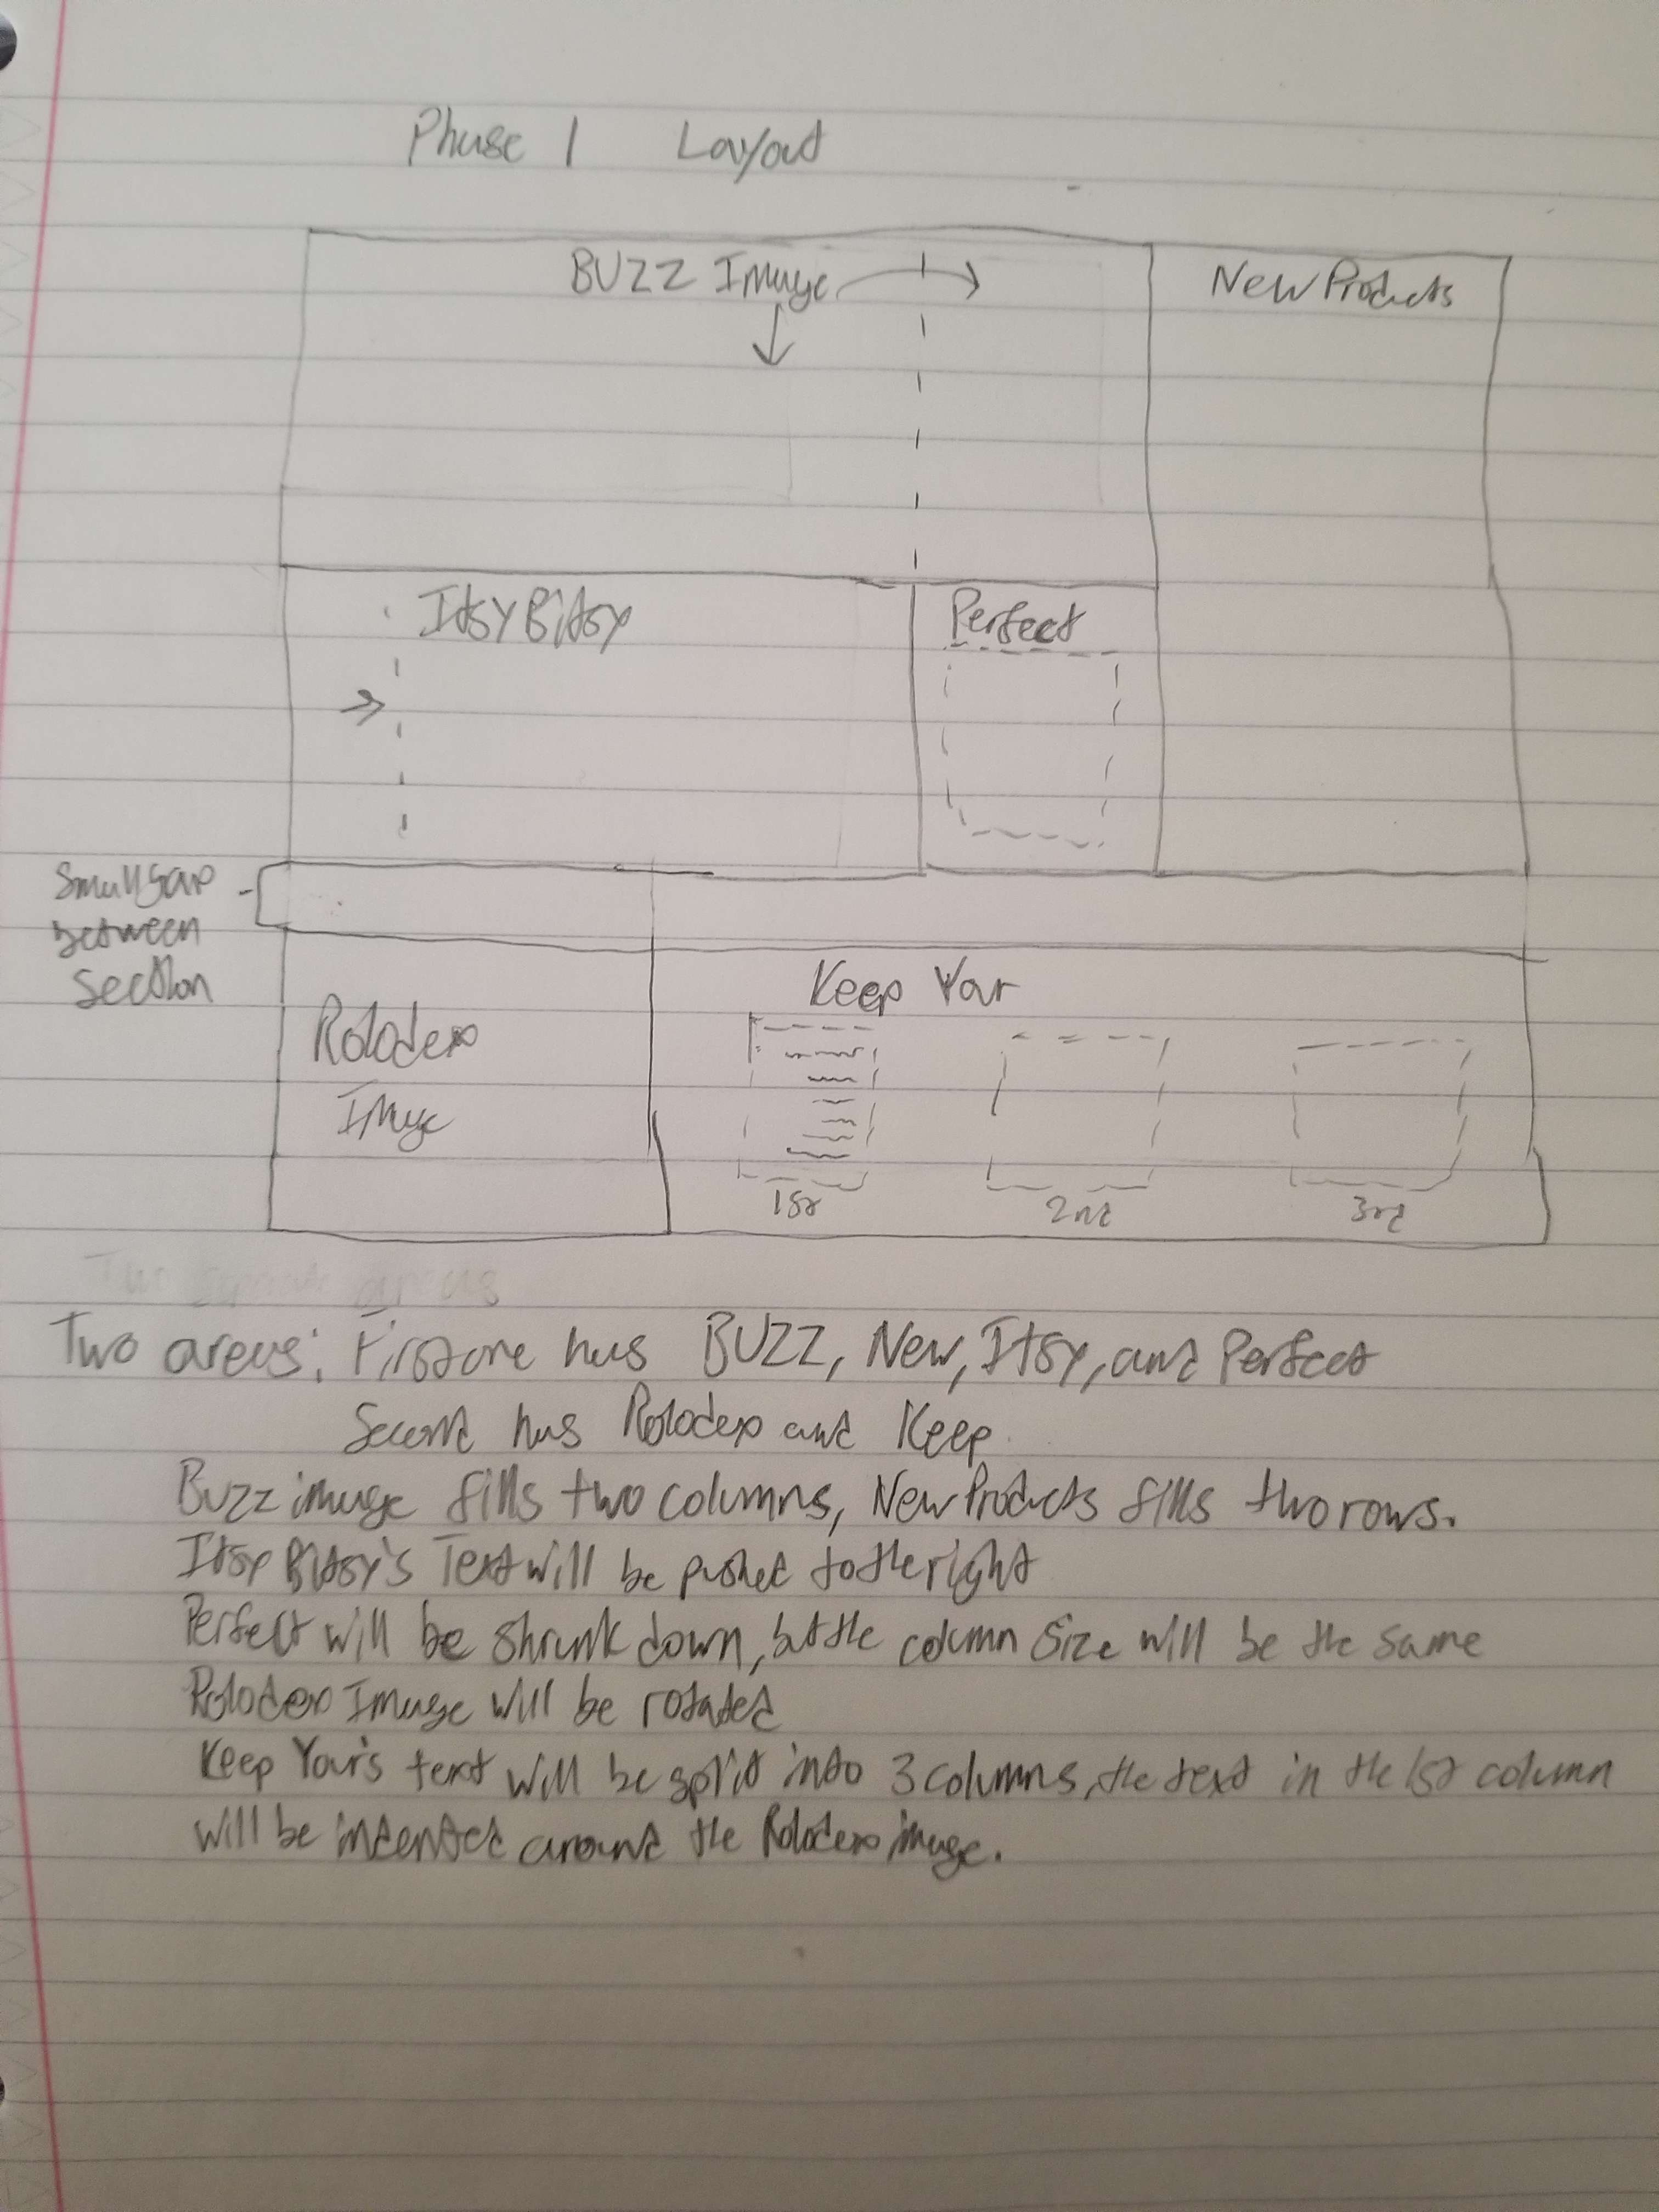 Phase 1 Layout
BUZZ Image
New Products
Itsy Bitsy
Perfect
Small gap
between
section
Keep Your
Rolodex
Image
1st
2nd
3rd
Two areas: First one has BUZZ, New, Itsy, and Perfect
Second has Rolodex and Keep.
Buzz image fills two columns, New Products fills two rows.
Itsy Bitsy's Text will be pushed to the right
Perfect will be shrunk down, but the column size will be the same
Rolodex Image will be rotated
Keep Your's text will be split into 3 columns, the text in the 1st column
will be indented around the Rolodex image.